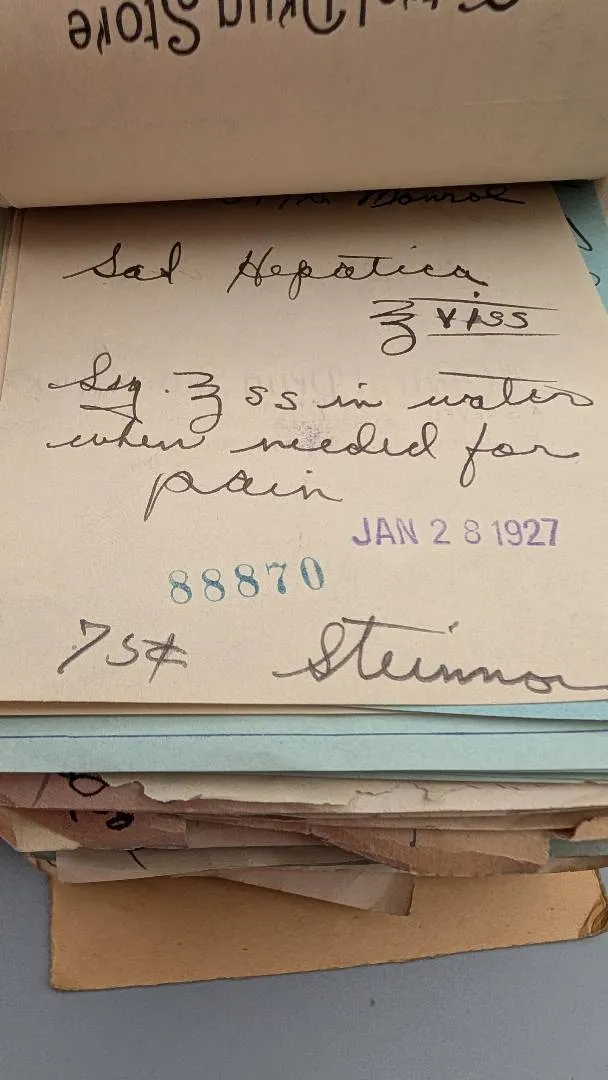 Drug Store
Monroe
Sal Hepatica
℥ viss
Sig. ℥ ss in water
when needed for
pain
JAN 28 1927
88870
75¢